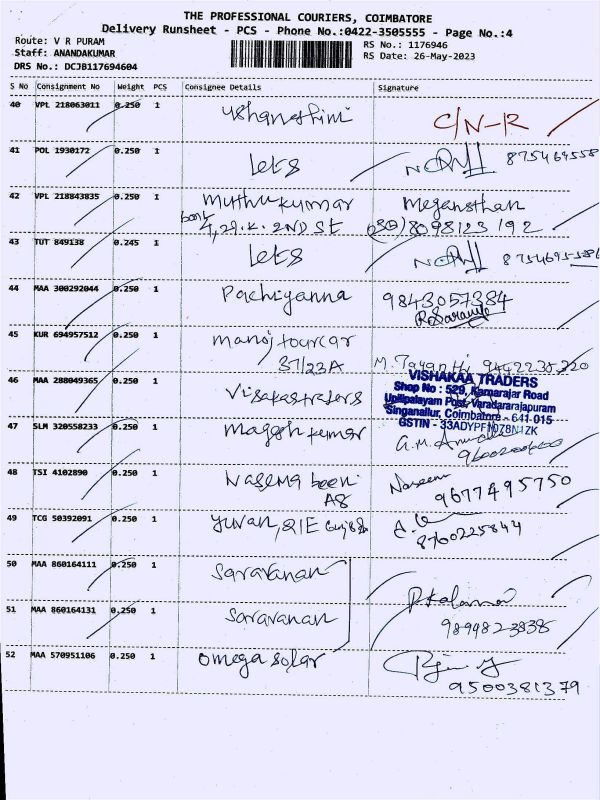 THE PROFESSIONAL COURIERS, COIMBATORE
Delivery Runsheet - PCS - Phone No.:0422-3505555 - Page No.:4
Route: V R PURAM
RS No.: 1176946
Staff: ANANDAKUMAR
RS Date: 26-May-2023
DRS No.: DCJB117694604
S No Consignment No Weight PCS Consignee Details Signature
40 VPL 218063011 0.250 1 C/N-R
41 POL 1930172 0.250 1 Lets 875469558
42 VPL 218843835 0.250 1 Muthukumar Megansthan
4,29.K. 2ND St 8098123192
43 TUT 849138 0.245 1 Lets 8754695586
44 MAA 300292044 0.250 1 Pachiyanna 9843057384
R.Saranya
45 KUR 694957512 0.250 1 manoj tourcar
37/23A 9442235220
46 MAA 288049365 0.250 1 Visakastraders
VISHAKAA TRADERS
Shop No : 529, Kamarajar Road
Uppilipalayam Post, Varadararajapuram
Singanallur, Coimbatore - 641 015
GSTIN - 33ADYPF1078N1ZK
47 SLM 320558233 0.250 1 Magesh kumar G.M.
48 TSI 4102890 0.250 1 Naseema been Naseem
A8 9677495750
49 TCG 50392091 0.250 1 yuvan, SIE
8760225844
50 MAA 860164111 0.250 1 Saravanan
51 MAA 860164131 0.250 1 Saravanan
9894823838
52 MAA 570951106 0.250 1 Omega solar
9500381379